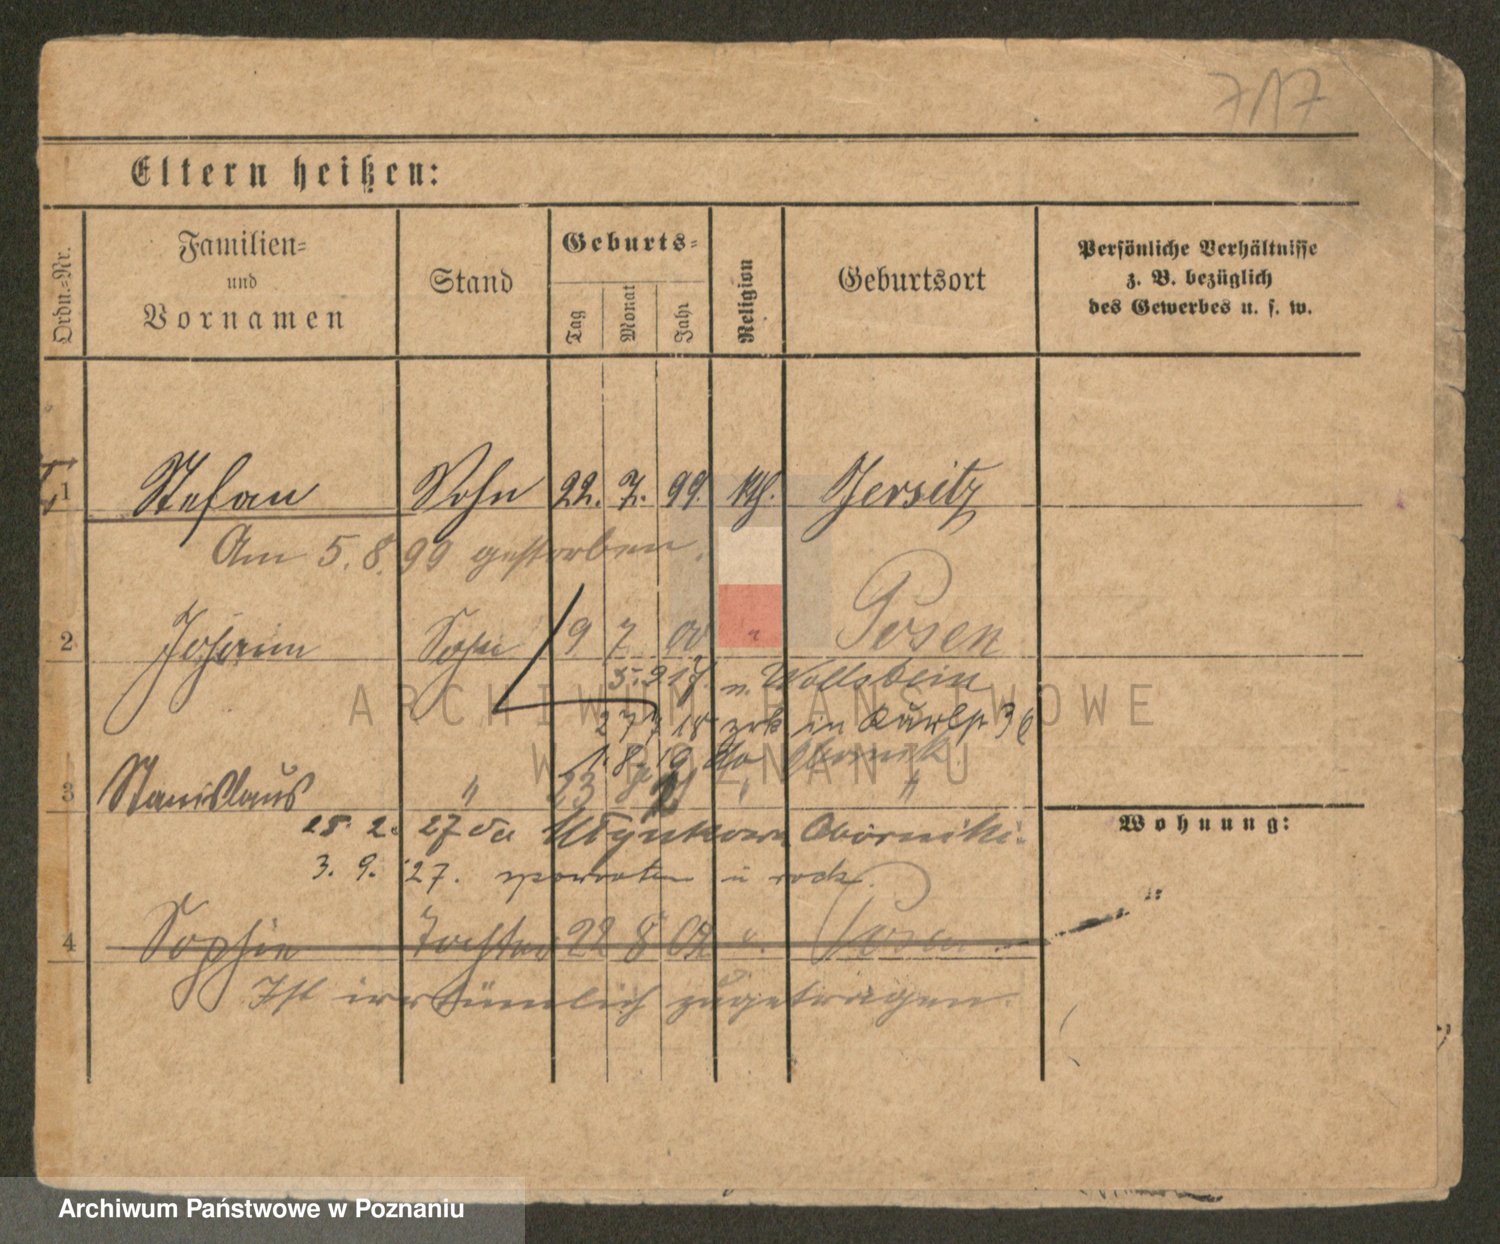 717
Eltern heißen:
Ordn.-Nr.
Familien-
und
Vornamen
Stand
Geburts-
Tag
Monat
Jahr
Religion
Geburtsort
Persönliche Verhältnisse
z. B. bezüglich
des Gewerbes u. s. w.
1 Stefan Sohn 22. 7. 99. kth. Jersitz
Am 5. 8. 99 gestorben.
2 Johann Sohn 9 7 00 " Posen
5. 9 17. n. Wollstein
27 7 18 zrk in
1. 8. 19
3 Stanislaus " 23 8 " "
25. 2. 27 do Oborniki
3. 9. 27.
4 Sophie Tochter 22 8 02 Posen
Ist irrtümlich zugetragen.
Wohnung:
ARCHIWUM PAŃSTWOWE
W POZNANIU
Archiwum Państwowe w Poznaniu